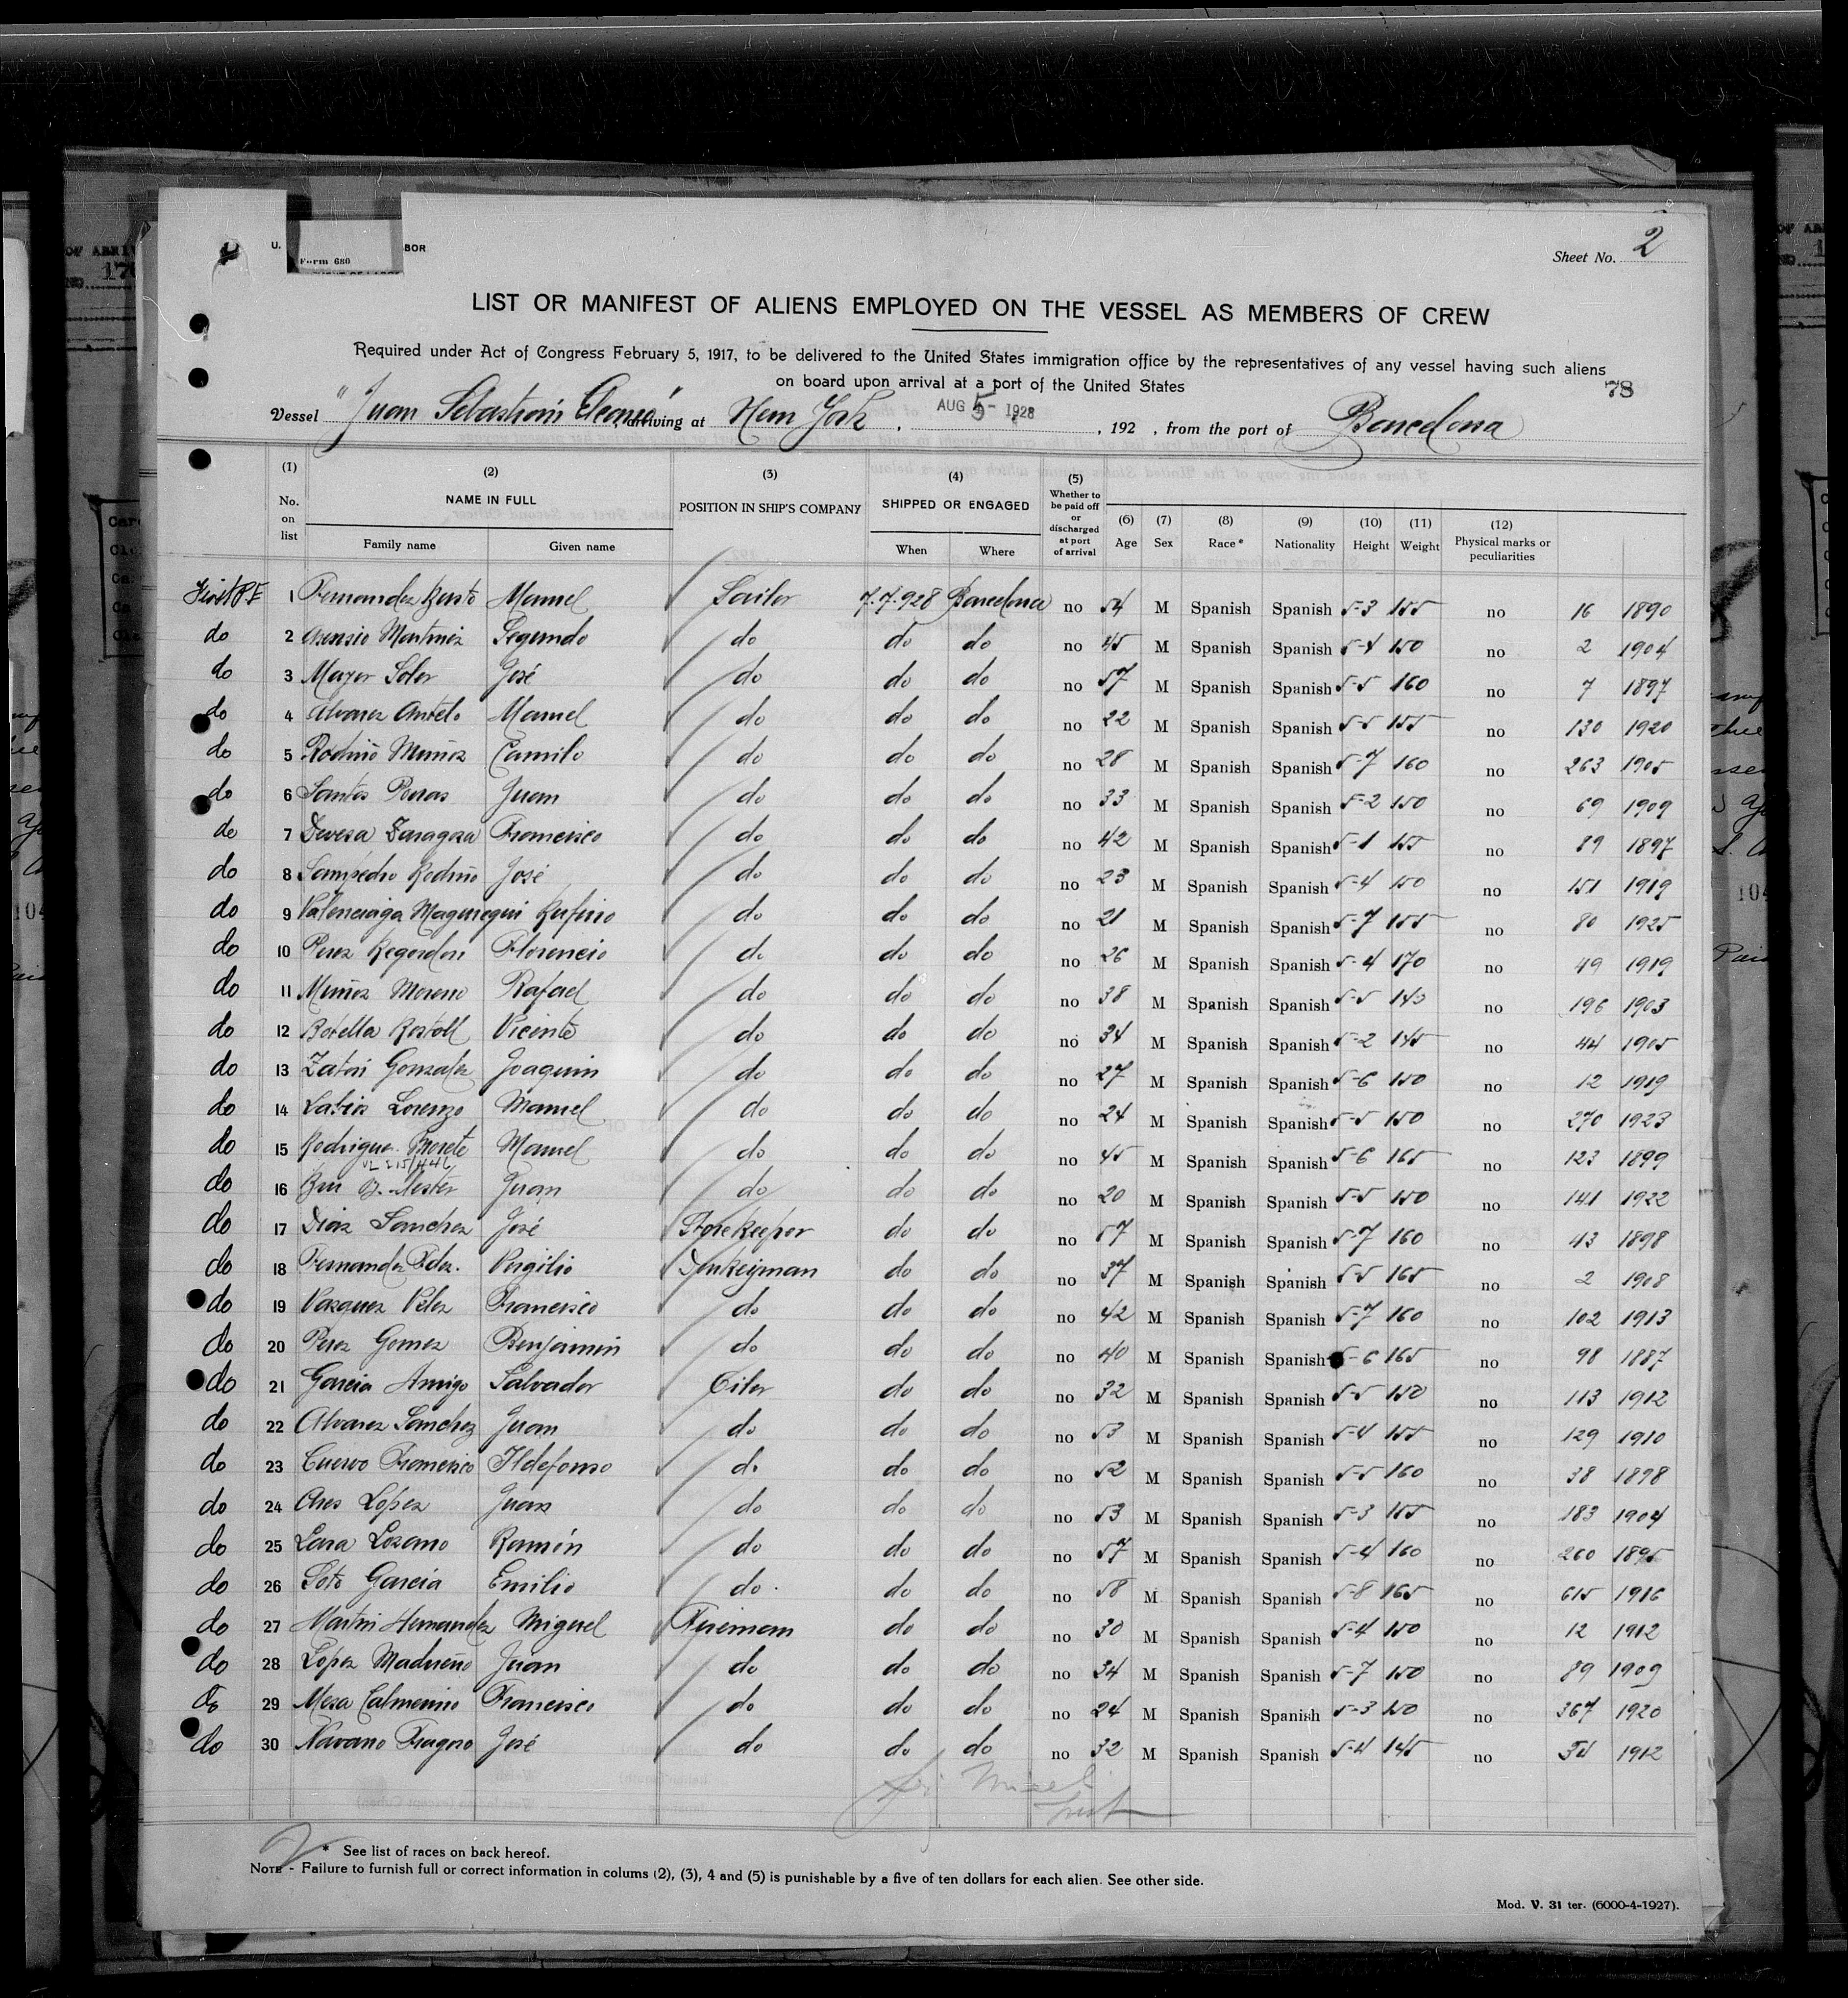 U. BOR
Form 680
Sheet No. 2
LIST OR MANIFEST OF ALIENS EMPLOYED ON THE VESSEL AS MEMBERS OF CREW
Required under Act of Congress February 5, 1917, to be delivered to the United States immigration office by the representatives of any vessel having such aliens
on board upon arrival at a port of the United States
78
Vessel "Juan Sebastián Elcano" arriving at New York, AUG 5- 1928, 192 , from the port of Barcelona
(1) (2) (3) (4) (5)
No. on list NAME IN FULL POSITION IN SHIP'S COMPANY SHIPPED OR ENGAGED Whether to be paid off or discharged at port of arrival (6) Age (7) Sex (8) Race* (9) Nationality (10) Height (11) Weight (12) Physical marks or peculiarities
Family name Given name When Where
1 Fernandez Manuel Sailor 7.7.928 Barcelona no 54 M Spanish Spanish 5-3 155 no 16 1890
do 2 Asensio Martinez Segundo do do do no 45 M Spanish Spanish 5-4 150 no 2 1904
do 3 Mayor Soler José do do do no 57 M Spanish Spanish 5-5 160 no 7 1897
do 4 Alvarez Antelo Manuel do do do no 22 M Spanish Spanish 5-5 155 no 130 1920
do 5 Rodiño Muñoz Camilo do do do no 28 M Spanish Spanish 5-7 160 no 263 1905
do 6 Santos Porras Juan do do do no 33 M Spanish Spanish 5-2 150 no 69 1909
do 7 Devesa Zaragoza Francisco do do do no 42 M Spanish Spanish 5-1 155 no 89 1897
do 8 Sampedro Rodiño José do do do no 23 M Spanish Spanish 5-4 150 no 151 1919
do 9 Valenciaga Magunegui Rufino do do do no 21 M Spanish Spanish 5-7 155 no 80 1925
do 10 Perez Regordon Florencio do do do no 26 M Spanish Spanish 5-4 170 no 49 1919
do 11 Muñoz Moreno Rafael do do do no 38 M Spanish Spanish 5-5 143 no 196 1903
do 12 Botella Rostoll Vicente do do do no 34 M Spanish Spanish 5-2 145 no 44 1905
do 13 Gonzalez Joaquin do do do no 27 M Spanish Spanish 5-6 150 no 12 1919
do 14 Lorenzo Manuel do do do no 24 M Spanish Spanish 5-5 150 no 270 1923
do 15 Manuel do do do no 45 M Spanish Spanish 5-6 165 no 123 1899
do 16 Juan do do do no 20 M Spanish Spanish 5-5 150 no 141 1922
do 17 Diaz Sanchez José Storekeeper do do no 57 M Spanish Spanish 5-7 160 no 43 1898
do 18 Fernandez Fdez. Virgilio Donkeyman do do no 37 M Spanish Spanish 5-5 165 no 2 1908
do 19 Vazquez Velez Francisco do do do no 42 M Spanish Spanish 5-7 160 no 102 1913
do 20 Perez Gomez Benjamin do do do no 40 M Spanish Spanish 5-6 165 no 98 1887
do 21 Garcia Amigo Salvador Oiler do do no 32 M Spanish Spanish 5-5 150 no 113 1912
do 22 Alvarez Sanchez Juan do do do no 53 M Spanish Spanish 5-4 155 no 129 1910
do 23 Cuervo Francisco Ildefonso do do do no 52 M Spanish Spanish 5-5 160 no 38 1898
do 24 Ares López Juan do do do no 53 M Spanish Spanish 5-3 155 no 183 1904
do 25 Lara Lozano Ramón do do do no 57 M Spanish Spanish 5-4 160 no 260 1895
do 26 Soto Garcia Emilio do do do no 58 M Spanish Spanish 5-8 165 no 615 1916
do 27 Martin Hernandez Miguel Fireman do do no 30 M Spanish Spanish 5-4 150 no 12 1912
do 28 López Madueño Juan do do do no 34 M Spanish Spanish 5-7 150 no 89 1909
do 29 Mesa Francisco do do do no 24 M Spanish Spanish 5-3 150 no 367 1920
do 30 Navarro Fragoso José do do do no 32 M Spanish Spanish 5-4 145 no 1912
* See list of races on back hereof.
NOTE - Failure to furnish full or correct information in colums (2), (3), 4 and (5) is punishable by a five of ten dollars for each alien. See other side.
Mod. V. 31 ter. (6000-4-1927).